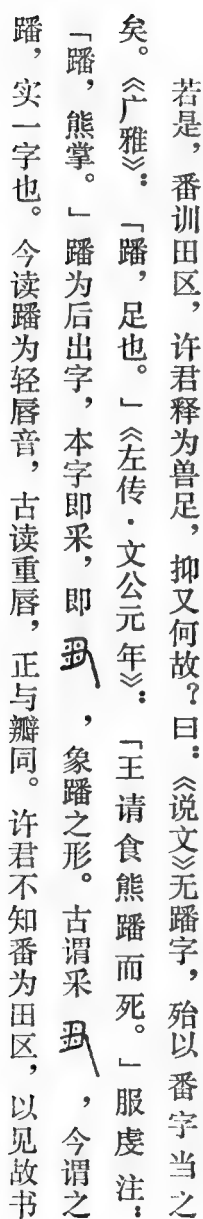 若是，番训田区，许君释为兽足，抑又何故？曰：《说文》无蹯字，殆以番字当之
矣。《广雅》：「蹯，足也。」《左传·文公元年》：「王请食熊蹯而死。」服虔注：
「蹯，熊掌。」蹯为后出字，本字即釆，即，象蹯之形。古谓釆，今谓之
蹯，实一字也。今读蹯为轻唇音，古读重唇，正与瓣同。许君不知番为田区，以见故书